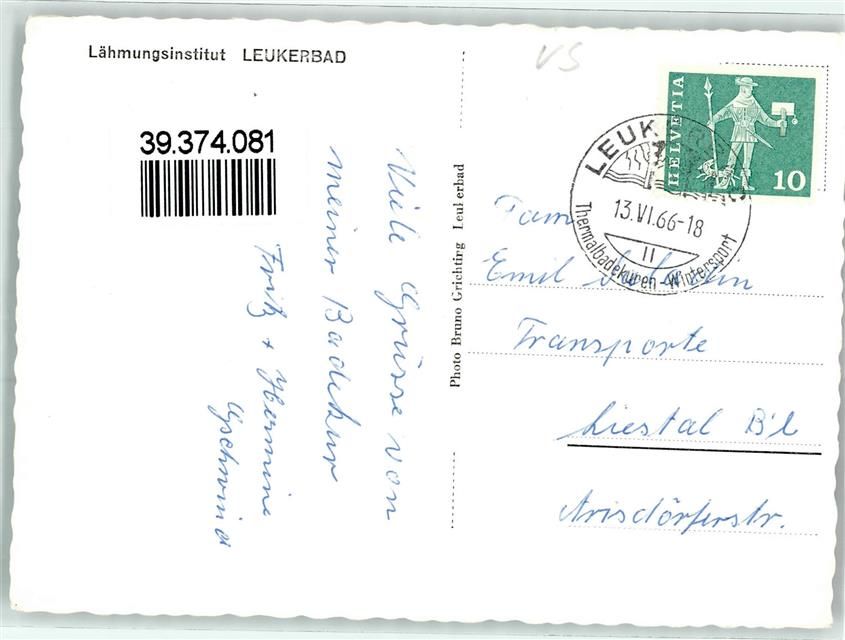 Lähmungsinstitut LEUKERBAD
VS
39.374.081
Viele Grüsse von
meiner Badekur
Fritz + Hermine
Gschwind
Photo Bruno Grichting Leukerbad
HELVETIA
10
LEUKERBAD
13.VI.66-18
II
Thermalbadekuren-Wintersport
Fam
Emil
Transporte
Liestal B'l
Arisdörferstr.